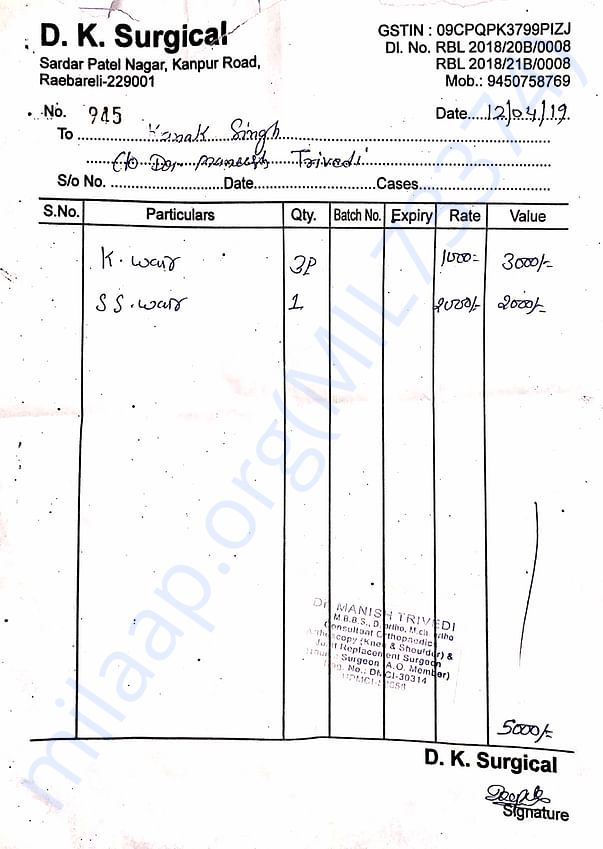 D. K. Surgical
Sardar Patel Nagar, Kanpur Road,
Raebareli-229001
GSTIN : 09CPQPK3799PIZJ
Dl. No. RBL 2018/20B/0008
RBL 2018/21B/0008
Mob.: 9450758769
No. 945
Date 12/04/19
To Kanak Singh
C/o Dr Maneesh Trivedi
S/o No. Date Cases
S.No. Particulars Qty. Batch No. Expiry Rate Value
K. wair 3P 1000= 3000/-
S S. wair 1 2000/- 2000/-
Dr. MANISH TRIVEDI
M.B.B.S., D. ortho, M.ch. ortho
Consultant Orthopaedic
(Knee & Shoulder) &
Joint Replacement Surgeon
Surgeon (A.O. Member)
Reg. No.: DMCI-30314
5000/-
D. K. Surgical
Signature
milaap.org(MIL733747